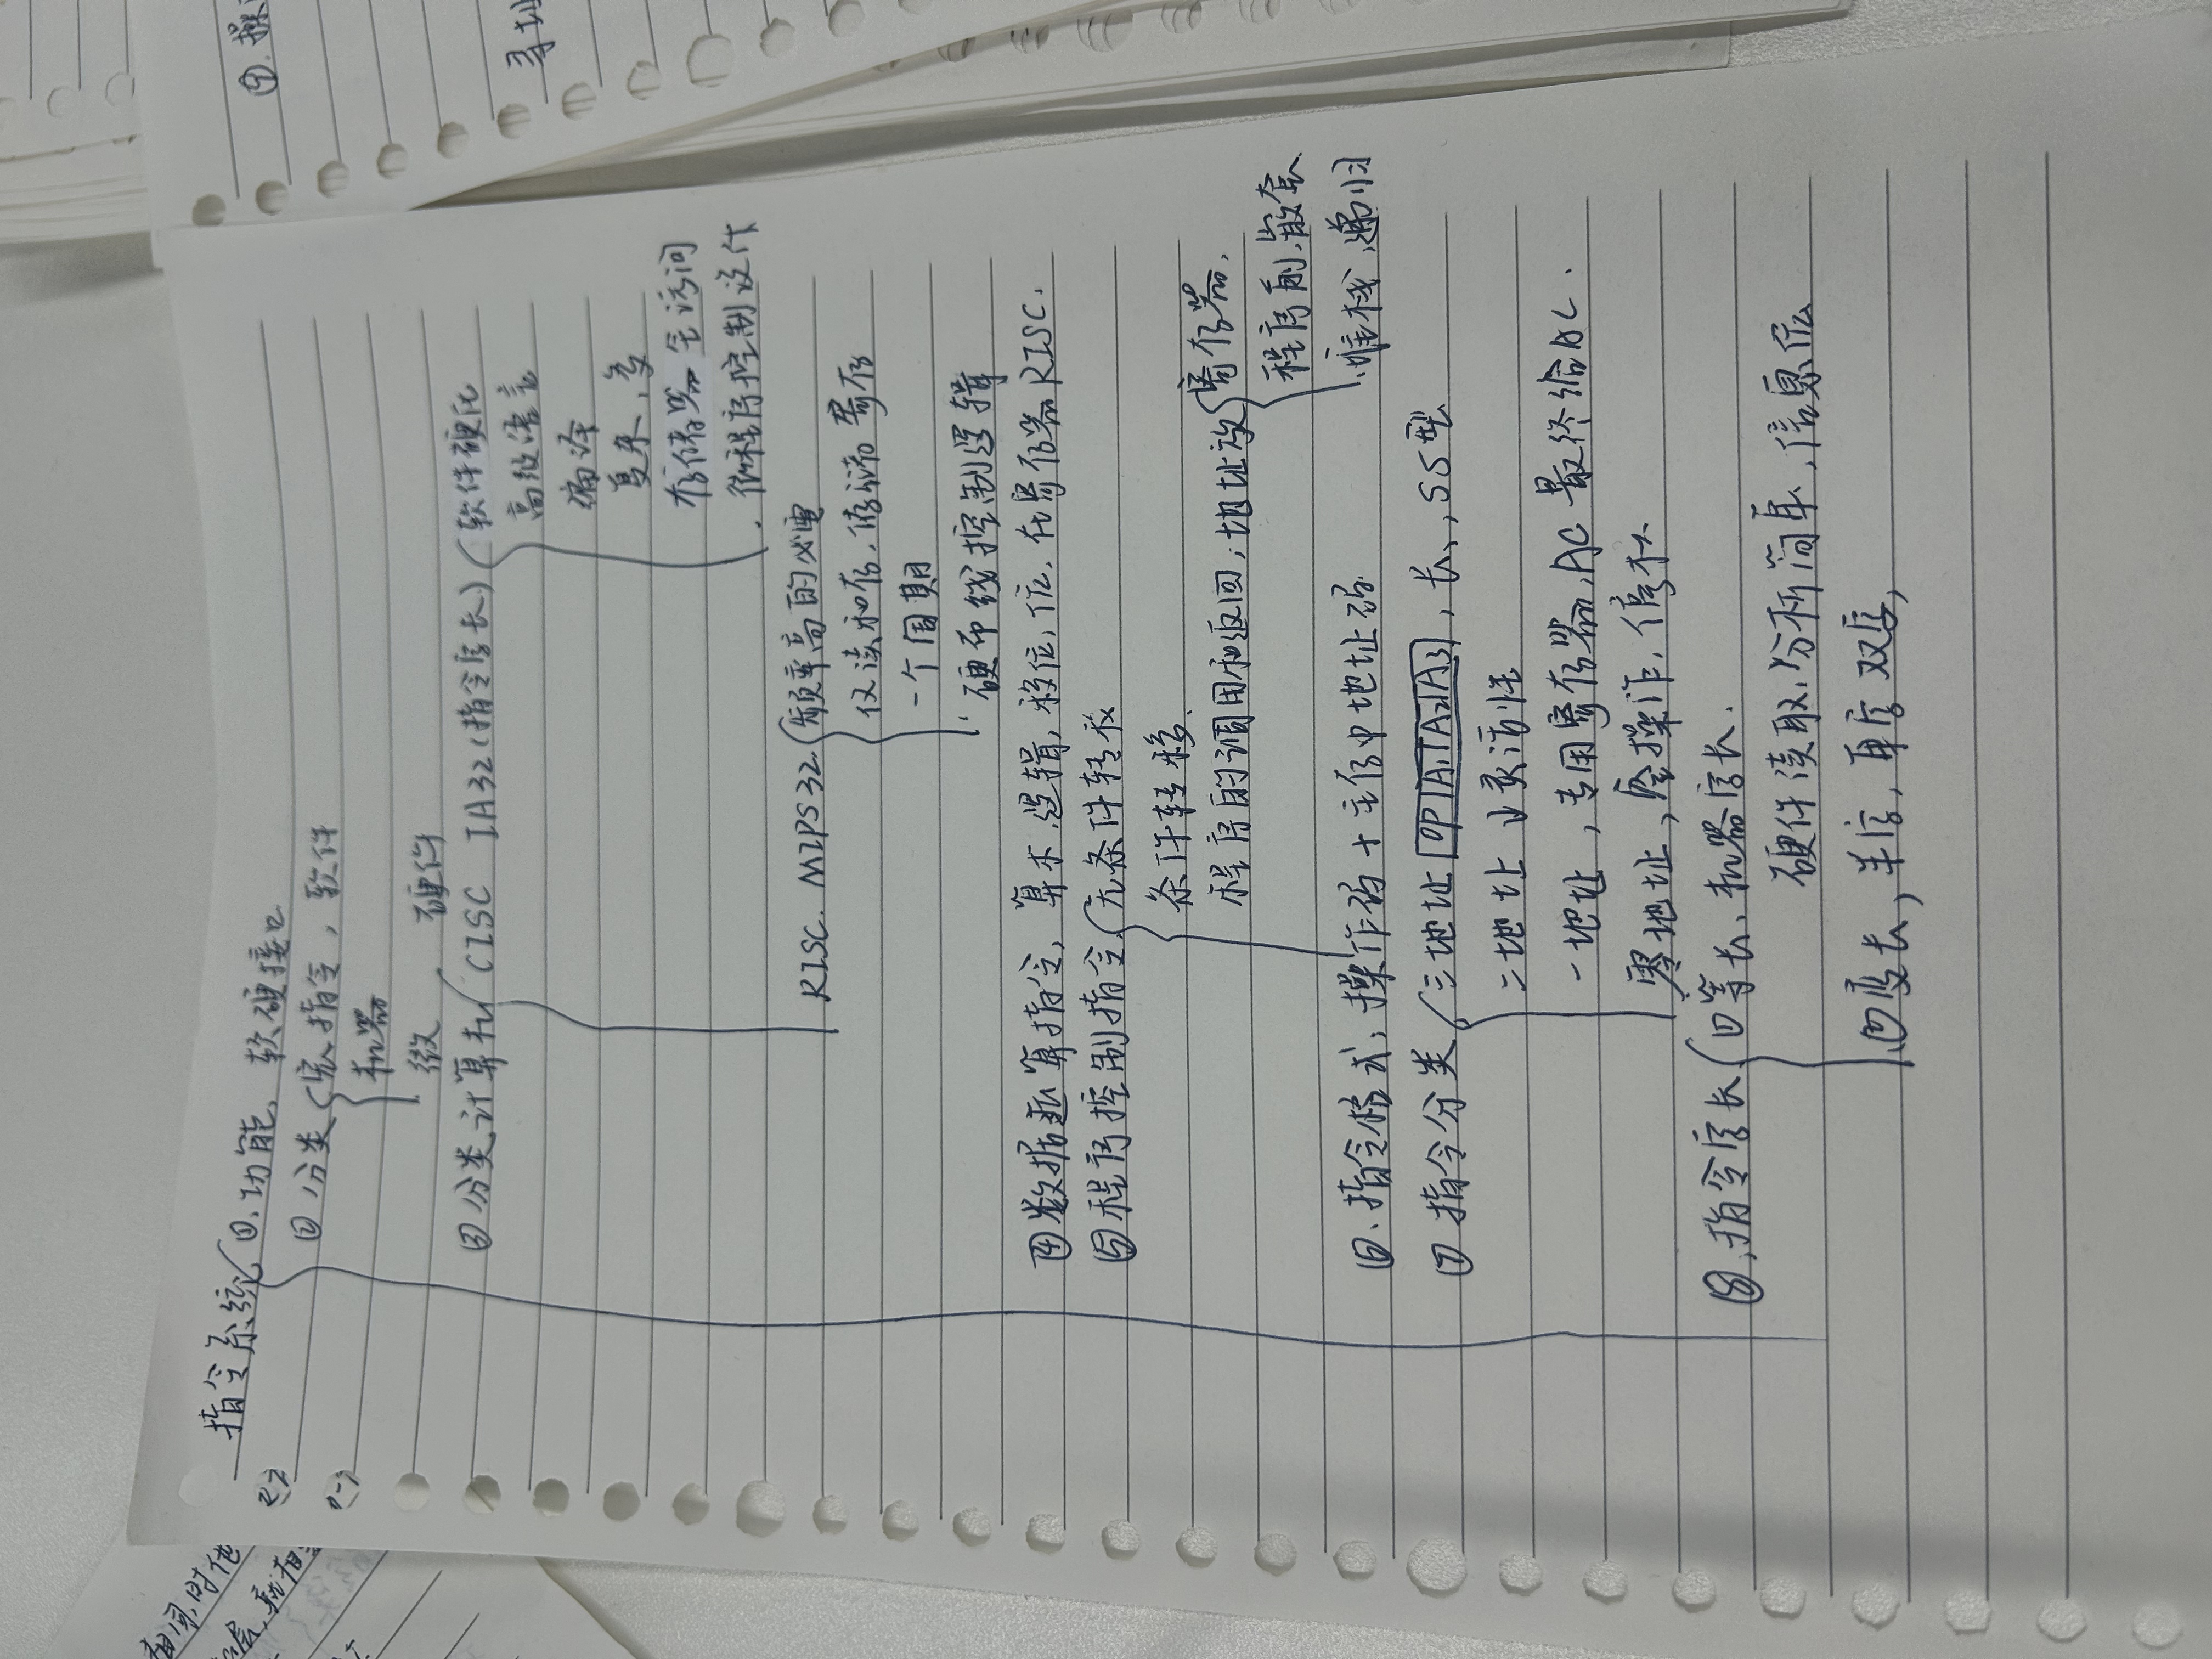 指令系统 ①.功能、软硬接口
② 分类 宏指令，软件
机器
微 硬件
③ 分类计算机 CISC IA32(指令字长) 软件硬化
高级语言
编译
复杂，多
存储器全访问
微程序控制设计
RISC. MIPS32. 频率高的必要
仅读和存， 寄存
一个周期
硬布线控制逻辑
④数据运算指令，算术.逻辑，移位，位. 在寄存器RISC.
⑤程序控制指令 无条件转移
条件转移、
程序的调用和返回，地址放 寄存器，
程序前，嵌套
堆栈，递归
⑥、指令格式，操作码＋主存中地址码
⑦ 指令分类 三地址 OP|A1|A2|A3，长、，SS型
二地址 灵活性
一地址，专用寄存器，AC 最终给AC.
零地址，空操作，停机
⑧，指令字长 ①等长、机器字长.
硬件读取，分析简单，信息位
②变长，半字，单字 双字，
⑨. 操
寻址
相同，时他
层，就相